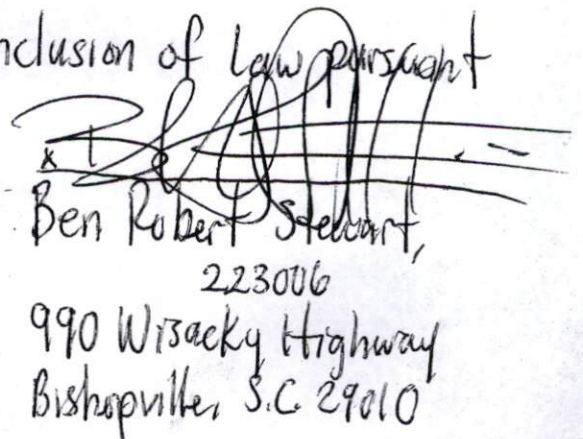 nclusion of Law pursuant
x
Ben Robert Stewart,
223006
990 Wisacky Highway
Bishopville, S.C. 29010